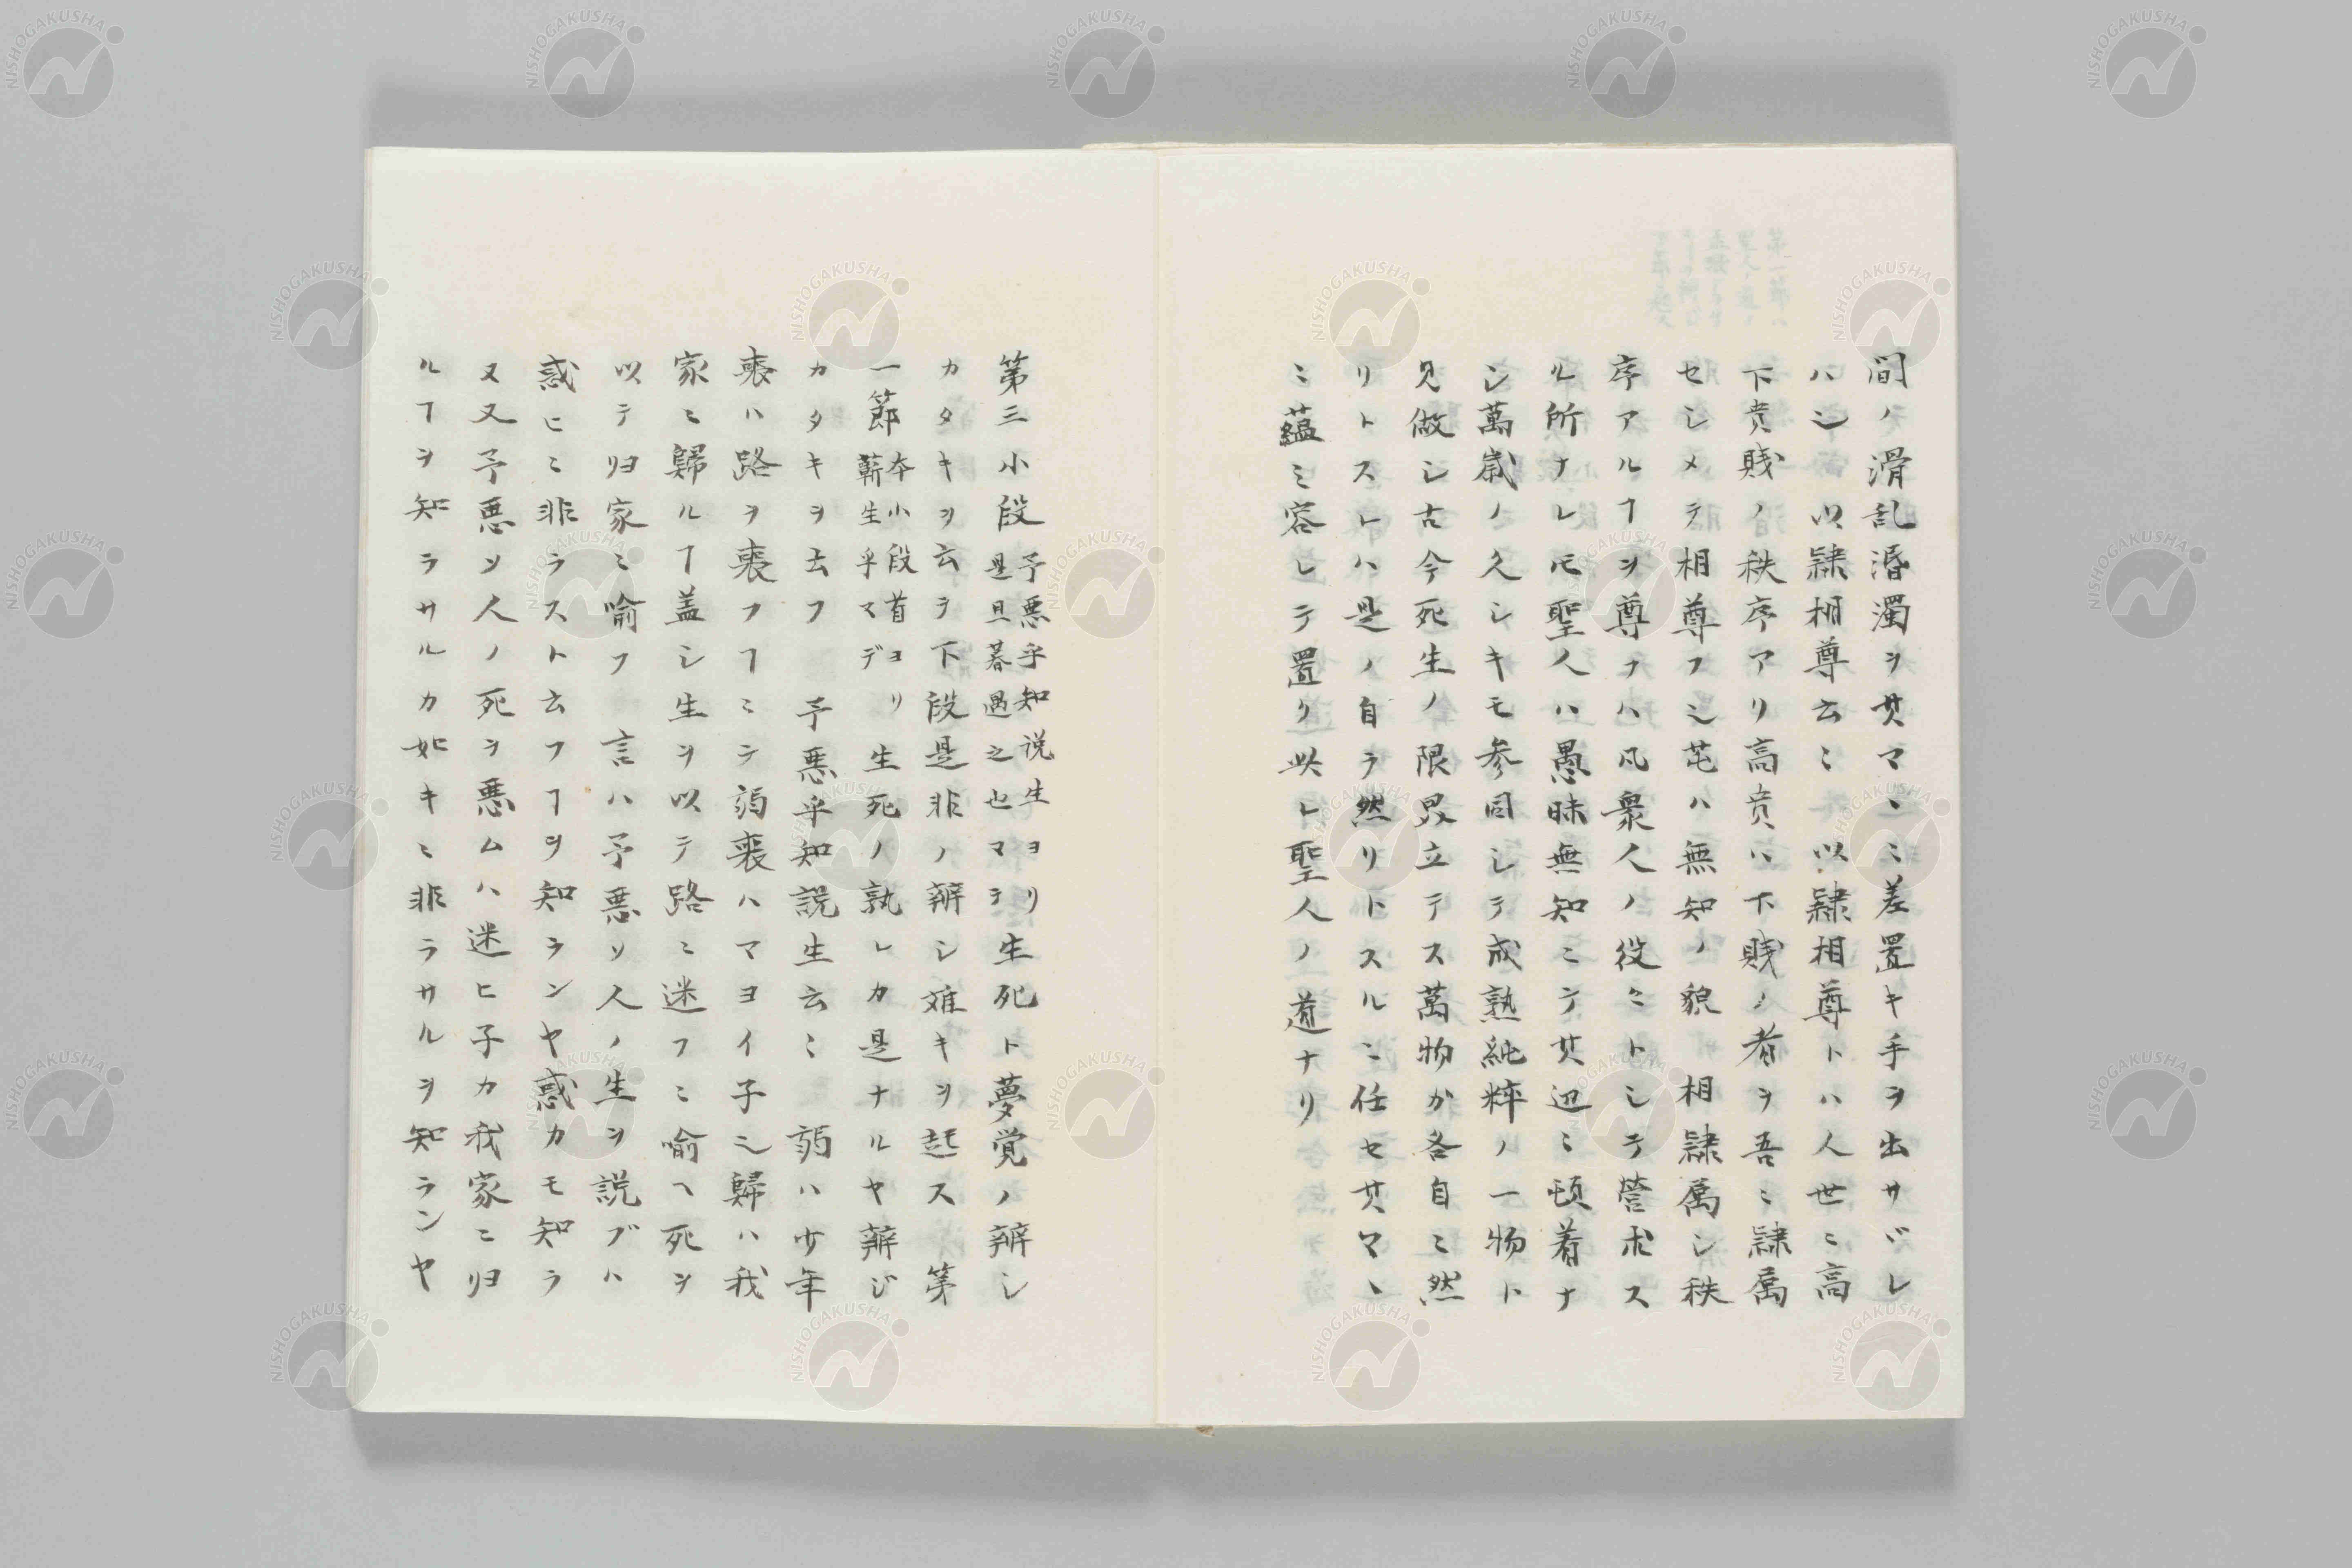 間ノ滑乱涽濁ヲ其マヽニ差置キ手ヲ出サバレ
ハ乄以隷相尊云ミ以隷相尊トハ人世ニ高
下貴賤ノ秩序アリ高貴ハ下賤ノ者ヲ吾ニ隷属
セシメテ相尊フ乄芚ハ無知ノ貌相隷属シ秩
序アルヿヲ尊ナハ凡衆人ノ役ミトシテ營求ス
ル所ナレ𪜈聖人ハ愚昧無知ニシテ其辺ニ頓着ナ
シ萬歳ノ久シキモ参同シテ成熟純粹ノ一物ト
見做シ古今死生ノ限畀立テス萬物か各自ニ然
リトスレハ是ノ自ラ然リトスルニ任セ其マヽ
ニ蘊ミ容レテ置リ此レ聖人ノ道ナリ
第三小段
予悪乎知説生ヨリ
是旦暮遇之也マテ
生死ト夢覚ノ辨シ
カタキヲ云ラ下段是非ノ辨シ難キヲ起ス 第
一節
本小段首ヨリ
蘄生乎マデ
生死ノ孰レカ是ナルヤ辨ジ
カタキヲ云フ 予悪乎知説生云ミ 弱ハ少年
喪ハ路ヲ喪フヿニシテ弱喪ハマヨイ子乄歸ハ我
家ニ歸ルヿ盖シ生ヲ以テ路ニ迷フニ喻ヘ死ヲ
以テ归家ニ喻フ 言ハ予悪ソ人ノ生ヲ説ブハ
惑ヒニ非ラスト云フヿヲ知ランヤ惑カモ知ラ
又又予悪ソ人ノ死ヲ悪ムハ迷ヒ子カ我家ニ归
ルヿヲ知ラサルカ如キニ非ラサルヲ知ランヤ
NISHOGAKUSHA